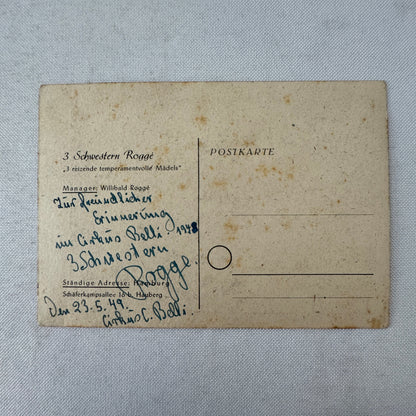 3 Schwestern Roggé
„3 reizende temperamentvolle Mädels“
Manager: Willibald Roggé
Zur freundlicher
Erinnerung
im Cirkus Belli 1948
3 Schwestern
Rogge.
Ständige Adresse: Hamburg
Schäferkampsallee 16 b. Hauberg
Den 23.5.49.
Cirkus C. Belli.
POSTKARTE